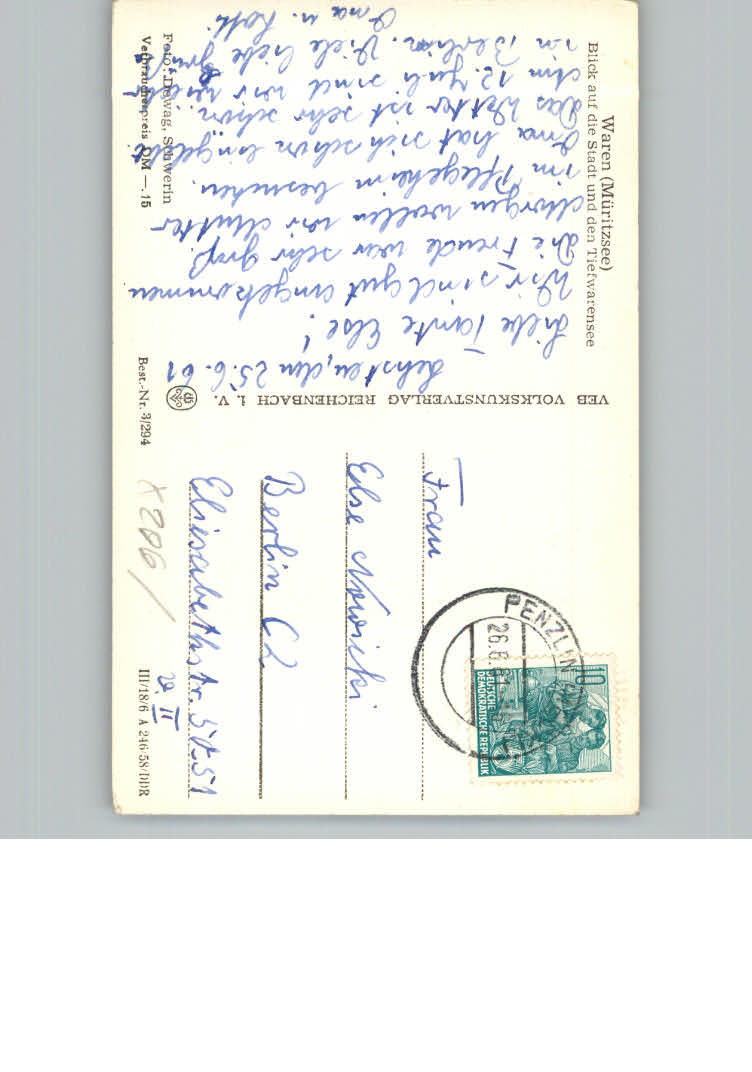 Waren (Müritzsee)
Blick auf die Stadt und den Tiefwarensee
Lehsten, den 25.6.61
Liebe Tante Else!
Wir sind gut angekommen
Die Freude war sehr groß.
Morgen wollen wir Mutter
im Pflegeheim besuchen.
Oma hat sich schon eingelebt.
Das Wetter ist sehr schön.
Am 12. Juli sind wir wieder
in Berlin. Viele liebe Grüße
Oma u.
Foto: Dewag, Schwerin
Verbraucherpreis DM —.15
VEB VOLKSKUNSTVERLAG REICHENBACH i. V.
Best.-Nr. 3/294
III/18/6 A 246/58/DDR
PENZLIN
26.6.61
10
DEUTSCHE
DEMOKRATISCHE REPUBLIK
Frau
Else Nowicki
Berlin C2
Eliesabethstr.
II
X206/